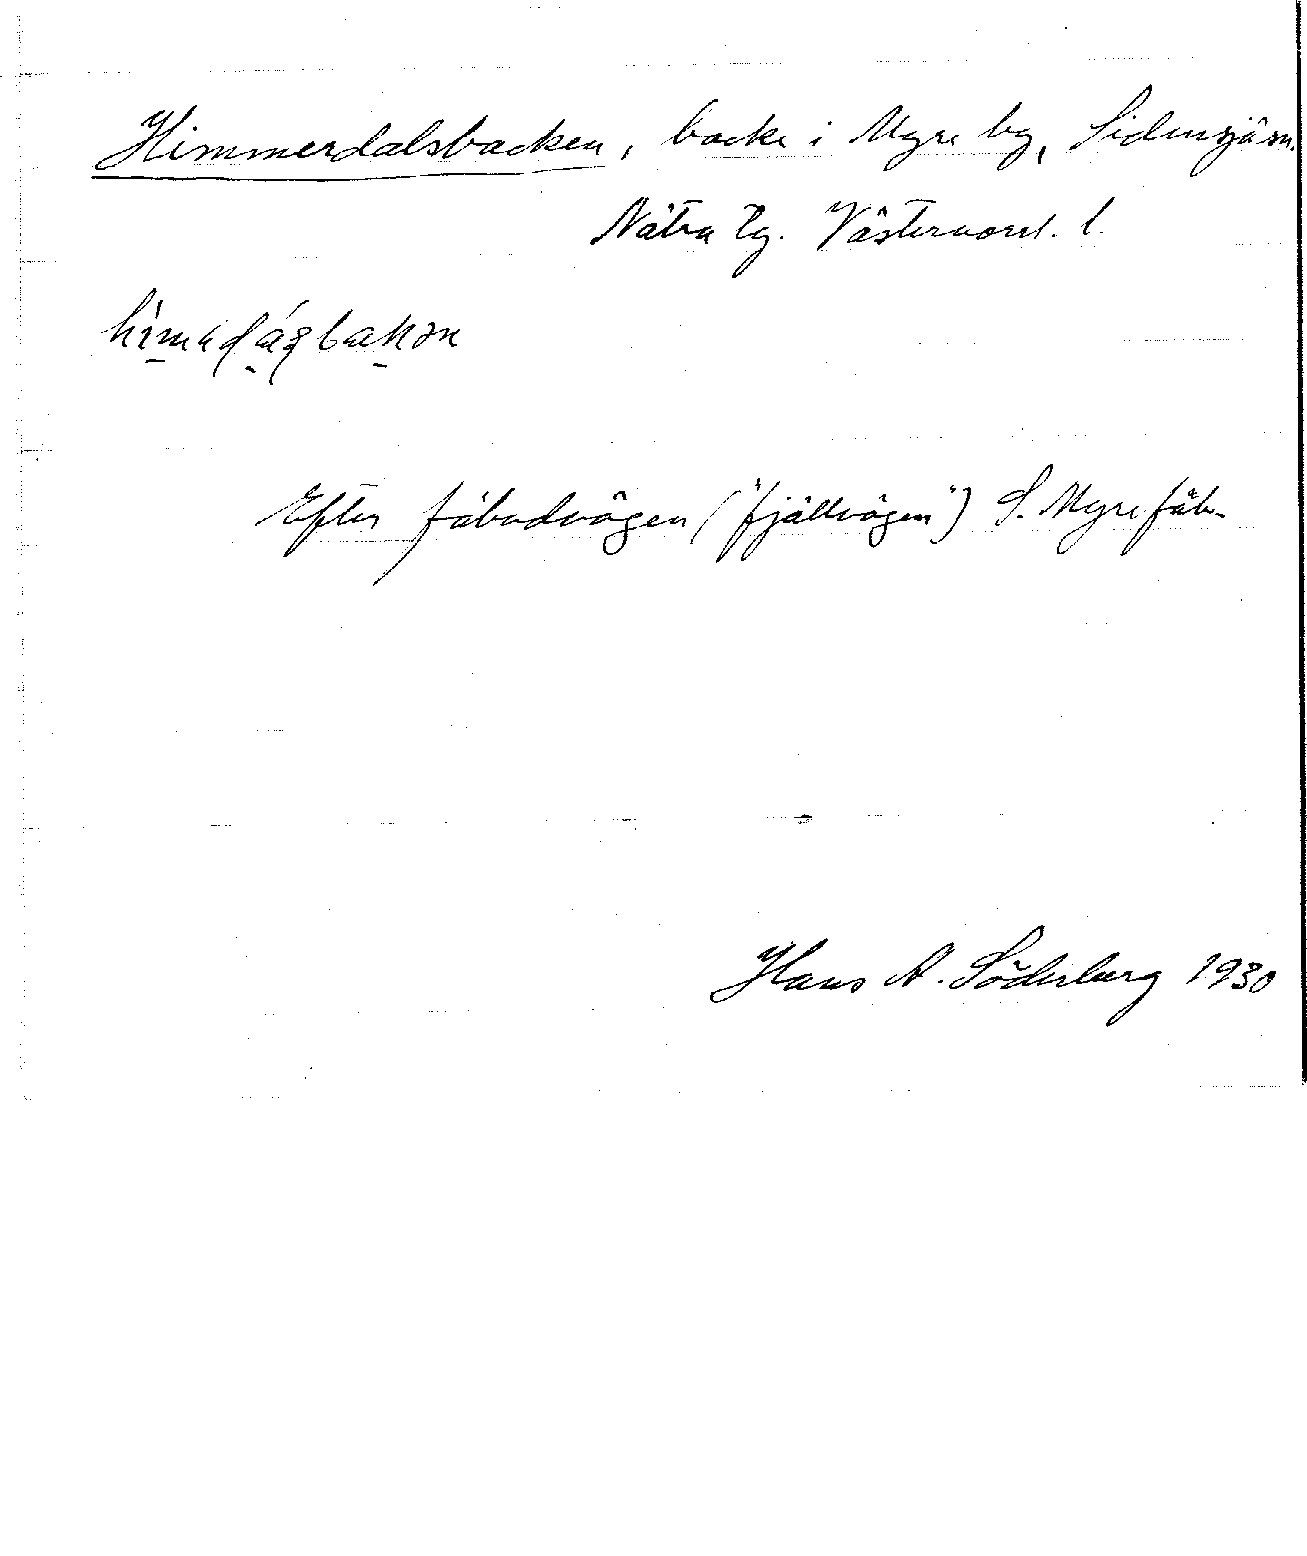 Himmerdalsbacken, backe i Myre by, Sidensjö sn.
Nätra tg. Västernorrl. l.
Efter fäbodvägen ("fjällvägen") S. Myre fäb.
Hans A. Söderberg 1930